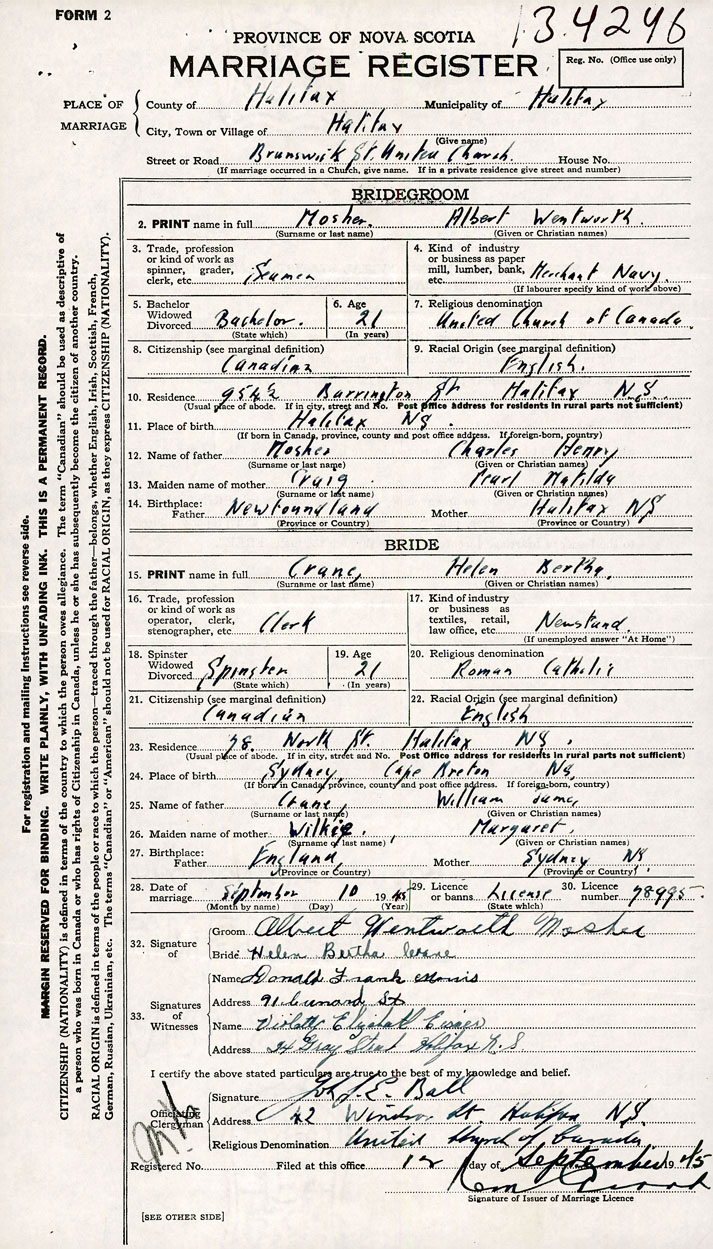 FORM 2
134246
PROVINCE OF NOVA SCOTIA
MARRIAGE REGISTER
Reg. No. (Office use only)
PLACE OF MARRIAGE
County of Halifax Municipality of Halifax
City, Town or Village of Halifax
(Give name)
Street or Road Brunswick St. United Church. House No.
(If marriage occurred in a Church, give name. If in a private residence give street and number)
BRIDEGROOM
2. PRINT name in full Mosher. Albert Wentworth.
(Surname or last name) (Given or Christian names)
3. Trade, profession or kind of work as spinner, grader, clerk, etc. Seaman
4. Kind of industry or business as paper mill, lumber, bank, etc. Merchant Navy.
(If labourer specify kind of work above)
5. Bachelor Widowed Divorced Bachelor.
(State which)
6. Age 21
(In years)
7. Religious denomination
United Church of Canada.
8. Citizenship (see marginal definition)
Canadian
9. Racial Origin (see marginal definition)
English.
10. Residence 954½ Barrington St Halifax NS.
(Usual place of abode. If in city, street and No. Post Office address for residents in rural parts not sufficient)
11. Place of birth Halifax NS.
(If born in Canada, province, county and post office address. If foreign-born, country)
12. Name of father Mosher Charles Henry
(Surname or last name) (Given or Christian names)
13. Maiden name of mother Craig Pearl Matilda
(Surname or last name) (Given or Christian names)
14. Birthplace: Father Newfoundland Mother Halifax NS
(Province or Country) (Province or Country)
BRIDE
15. PRINT name in full Crane, Helen Bertha.
(Surname or last name) (Given or Christian names)
16. Trade, profession or kind of work as operator, clerk, stenographer, etc Clerk
17. Kind of industry or business as textiles, retail, law office, etc. Newstand.
(If unemployed answer "At Home")
18. Spinster Widowed Divorced Spinster
(State which)
19. Age 21
(In years)
20. Religious denomination
Roman Catholic
21. Citizenship (see marginal definition)
Canadian
22. Racial Origin (see marginal definition)
English
23. Residence 78. North St. Halifax NS.
(Usual place of abode. If in city, street and No. Post Office address for residents in rural parts not sufficient)
24. Place of birth Sydney, Cape Breton NS,
(If born in Canada, province, county and post office address. If foreign-born, country)
25. Name of father Crane, William James
(Surname or last name) (Given or Christian names)
26. Maiden name of mother Wilkie, Margaret.
(Surname or last name) (Given or Christian names)
27. Birthplace: Father England, Mother Sydney NS.
(Province or Country) (Province or Country)
28. Date of marriage September 10 1945
(Month by name) (Day) (Year)
29. Licence or banns License
(State which)
30. Licence number 78995.
32. Signature of
Groom Albert Wentworth Mosher
Bride Helen Bertha Crane
33. Signatures of Witnesses
Name Donald Frank
Address 91 Cunard St
Name Elizabeth
Address 24 Gray Street Halifax N.S
I certify the above stated particulars are true to the best of my knowledge and belief.
Officiating Clergyman
Signature J. E. Ball
Address 42 Windsor St. Halifax NS.
Religious Denomination United Church of Canada
Registered No. Filed at this office 12 day of September 1945
Signature of Issuer of Marriage Licence
[SEE OTHER SIDE]
For registration and mailing Instructions see reverse side.
MARGIN RESERVED FOR BINDING. WRITE PLAINLY, WITH UNFADING INK. THIS IS A PERMANENT RECORD.
CITIZENSHIP (NATIONALITY) is defined in terms of the country to which the person owes allegiance. The term "Canadian" should be used as descriptive of
a person who was born in Canada or who has rights of Citizenship in Canada, unless he or she has subsequently become the citizen of another country.
RACIAL ORIGIN is defined in terms of the people or race to which the person—traced through the father—belongs, whether English, Irish, Scottish, French,
German, Russian, Ukrainian, etc. The terms "Canadian" or "American" should not be used for RACIAL ORIGIN, as they express CITIZENSHIP (NATIONALITY).